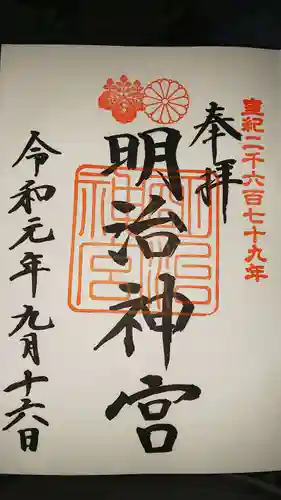 皇紀二千六百七十九年
奉拝
明治神宮
令和元年九月十六日
明治神宮